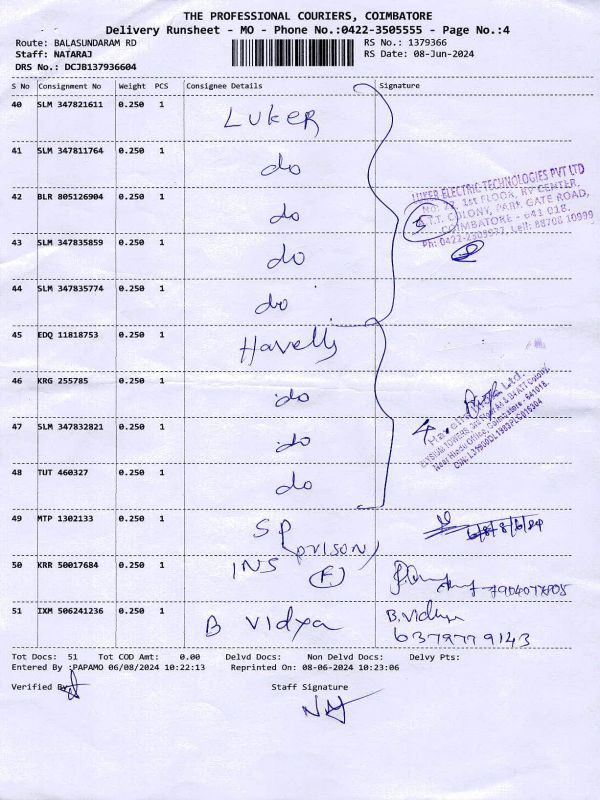 THE PROFESSIONAL COURIERS, COIMBATORE
Delivery Runsheet - MO - Phone No.:0422-3505555 - Page No.:4
Route: BALASUNDARAM RD
RS No.: 1379366
Staff: NATARAJ
RS Date: 08-Jun-2024
DRS No.: DCJB137936604
S No Consignment No Weight PCS Consignee Details Signature
40 SLM 347821611 0.250 1 LUKER
41 SLM 347811764 0.250 1 do
42 BLR 805126904 0.250 1 do
43 SLM 347835859 0.250 1 do
44 SLM 347835774 0.250 1 do
LUKER ELECTRIC TECHNOLOGIES PVT LTD
1st FLOOR, RV CENTER,
COLONY, PARK GATE ROAD,
COIMBATORE - 641 018.
5
45 EDQ 11818753 0.250 1 Havells
46 KRG 255785 0.250 1 do
47 SLM 347832821 0.250 1 do
48 TUT 460327 0.250 1 do
4
49 MTP 1302133 0.250 1 SP (prison)
50 KRR 50017684 0.250 1 INS (F)
51 IXM 506241236 0.250 1 B Vidya B. Vidhya
6379779143
Tot Docs: 51 Tot COD Amt: 0.00 Delvd Docs: Non Delvd Docs: Delvy Pts:
Entered By :PAPAMO 06/08/2024 10:22:13 Reprinted On: 08-06-2024 10:23:06
Verified By
Staff Signature